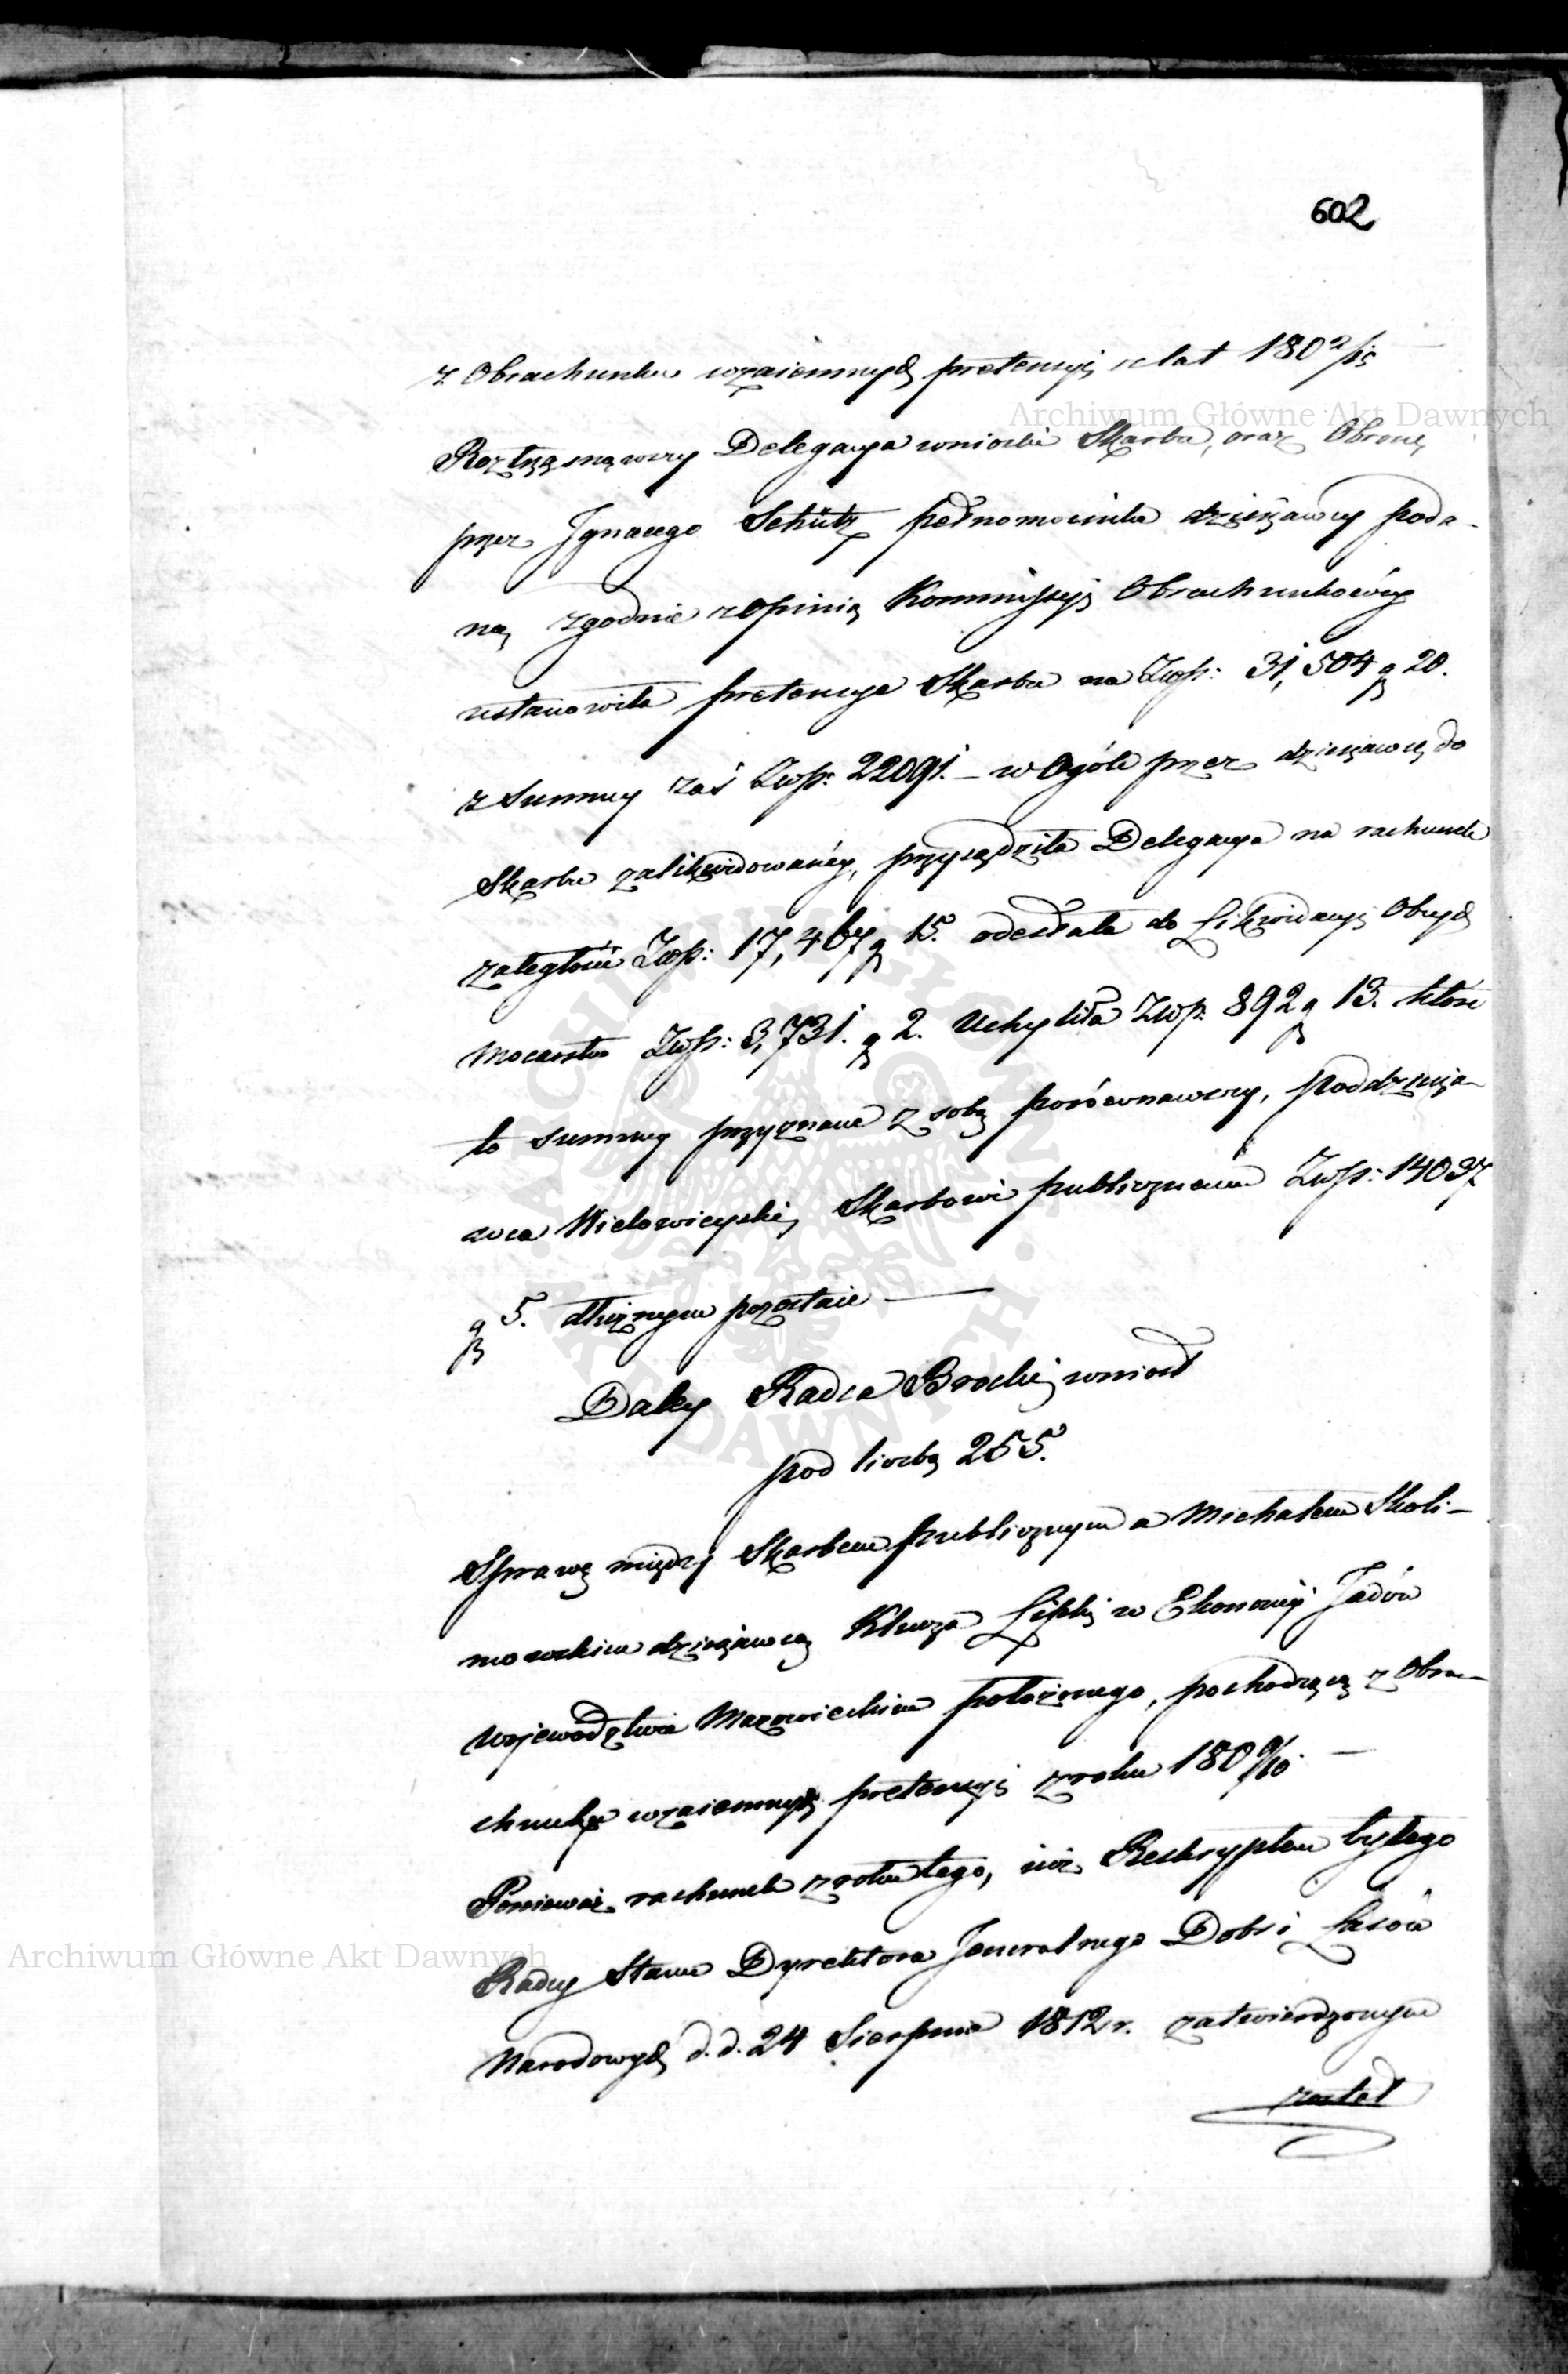 602
z Obrachunku wzaiemnych pretensyi z lat 180
Roztrząsnąwszy Delegacya wnioski Skarbu, oraz Obronę
przez Ignacego Schütz pełnomocnika dzierżawcy poda-
ną zgodnie z Opinią Kommissyi Obrachunkowéy
ustanowiła pretensye Skarbu na Złp: 31,504 g 20.
z Summy zaś Złp: 22091.– w Ogóle przez dzierżawcę do
Skarbu zalikwidowanéy, przysądziła Delegacya na rachunek
zaległości Złp: 17,467 g 15. odesłała do Likwidacyi Obcych
Mocarstw Złp: 3,731. g 2. Uchyliła Złp: 892 g 13. które
to summy przyznane z sobą porównawszy, poddzierża-
wca Wielowieyski, Skarbowi publicznemu Złp: 14037
g 5. dłużnym pozostaie —
Daley Radca Brocki wniósł
pod liczbą 255.
Sprawę między Skarbem publicznym a Michałem Skoli-
mowskim dzierżawcą Klucza Lipki w Ekonomii Jadów
Województwie Mazowieckim położonego, pochodzącą z Obra-
chunku wzaiemnych pretensyi z roku 1809/10. —
Ponieważ rachunek z roku tego, iuż Reskryptem byłego
Radcy Stanu Dyrektora Jeneralnego Dobr i Lasów
Narodowych d. d. 24 Sierpnia 1812 r. zatwierdzonym
został
Archiwum Główne Akt Dawnych
Archiwum Główne Akt Dawnych